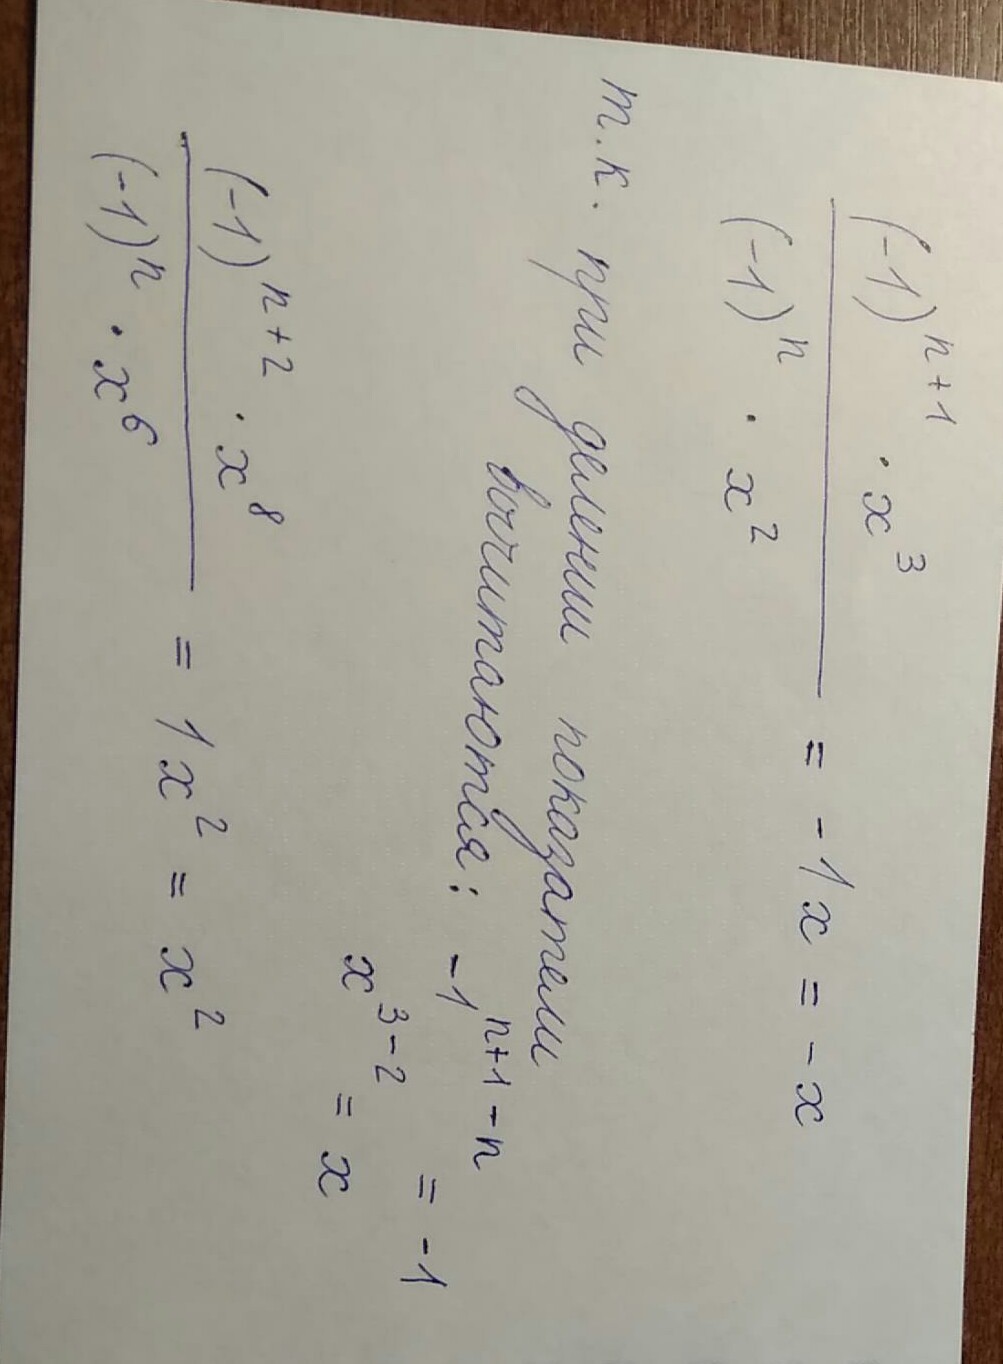 (-1)^{n+1} · x^3
—————— = -1x = -x
(-1)^n · x^2
т.к. при делении показатели
вычитаются: -1^{n+1-n} = -1
x^{3-2} = x
(-1)^{n+2} · x^8
—————— = 1x^2 = x^2
(-1)^n · x^6